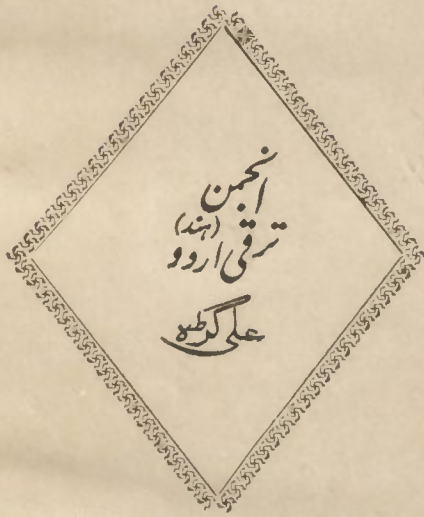 انجمن
ترقی اردو (ہند)
علی گڑھ